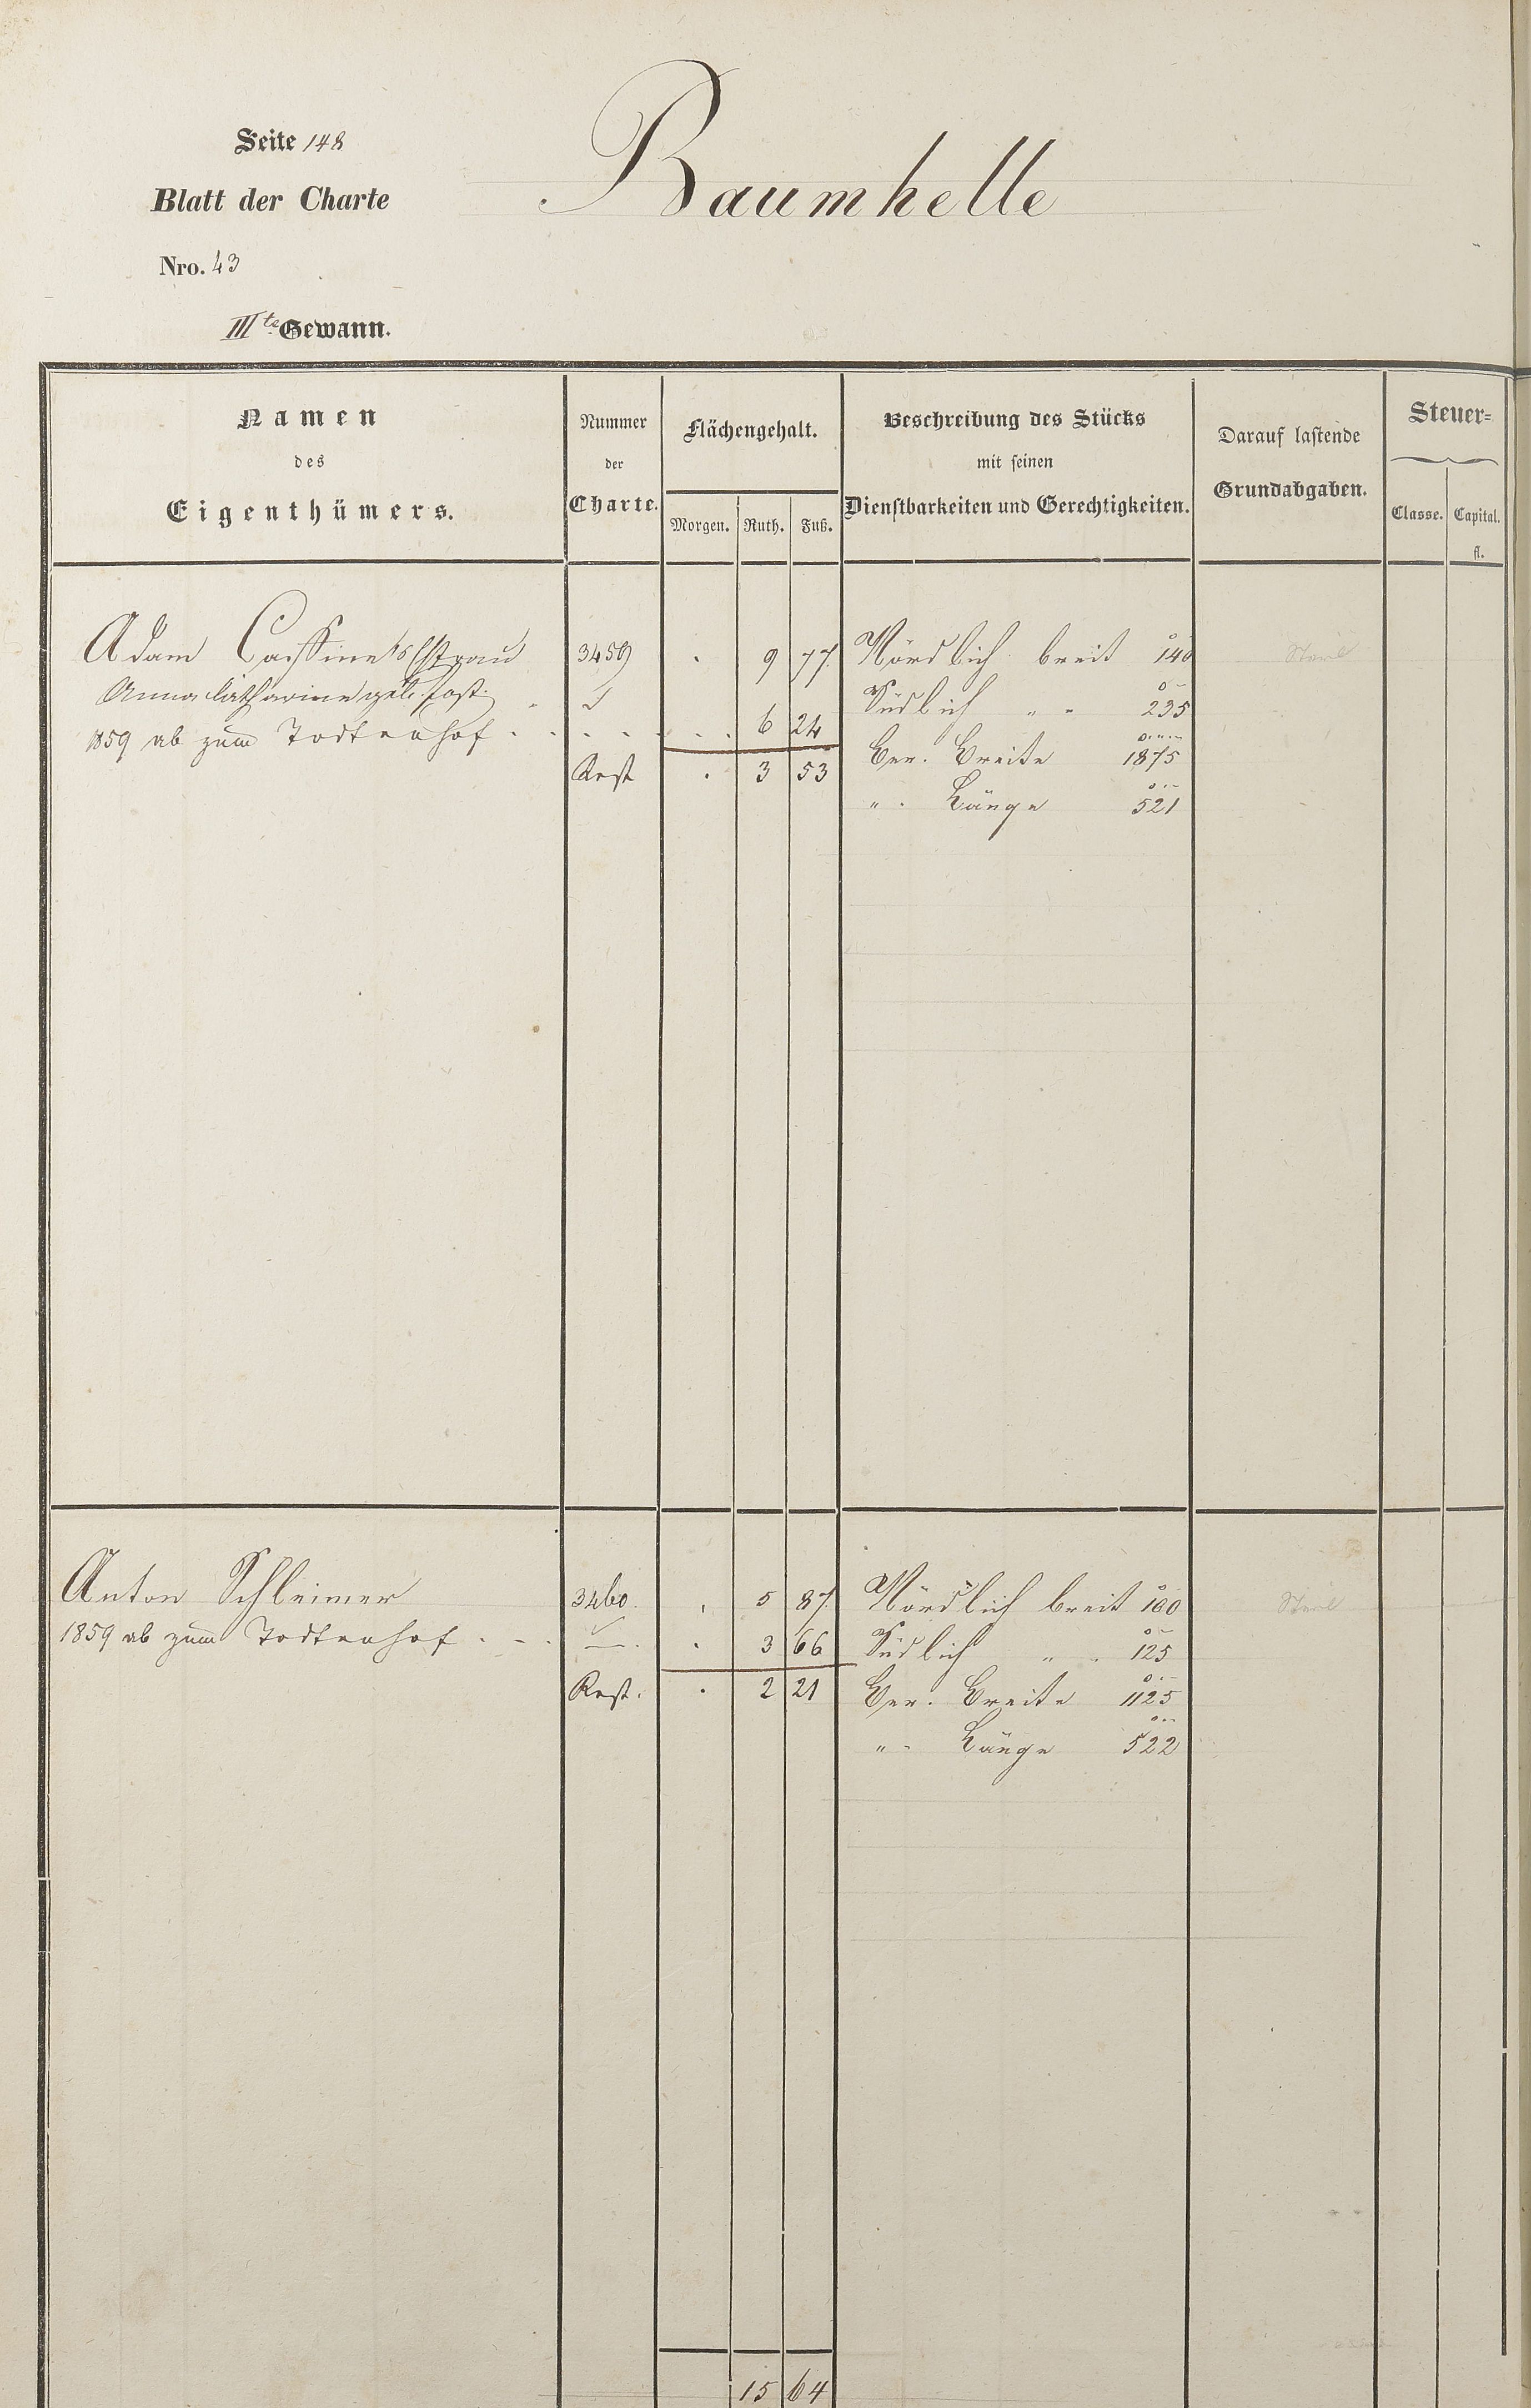 Seite 148
Blatt der Charte
Nro. 43
IIIte Gewann.
Baumhelle
Namen
des
Eigenthümers.
Nummer
der
Charte.
Flächengehalt.
Morgen. Ruth. Fuß.
Beschreibung des Stücks
mit seinen
Dienstbarkeiten und Gerechtigkeiten.
Darauf lastende
Grundabgaben.
Steuer=
Classe. Capital.
fl.
Adam 3459 . 9 77. Nördlich breit 140
Anna Catharine geb. Jost. Südlich " " 235
1859 ab zum Todtenhof . . . . . . . 6 24
Ber. Breite 1875
Rest . 3 53
" . Länge 521
Anton Schleimer 3460. . 5 87. Nördlich breit 100
1859 ab zum Todtenhof . - . — . . 3 66 Südlich " . 125
Rest. . 2 21 Ber. Breite 1125
" - Länge 522
15 64